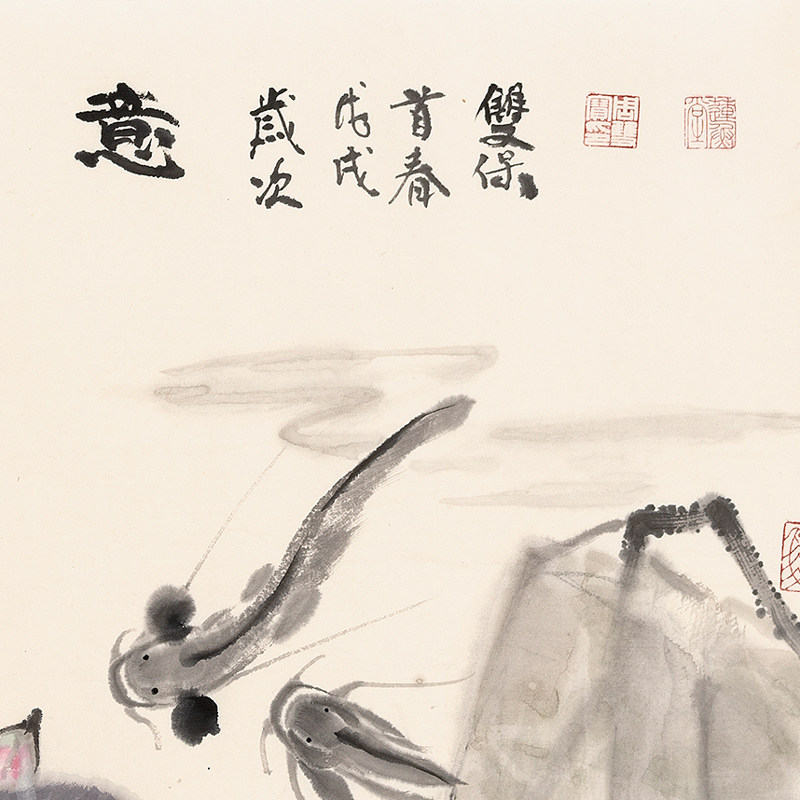 意
歲次
戊戌
首春
雙保